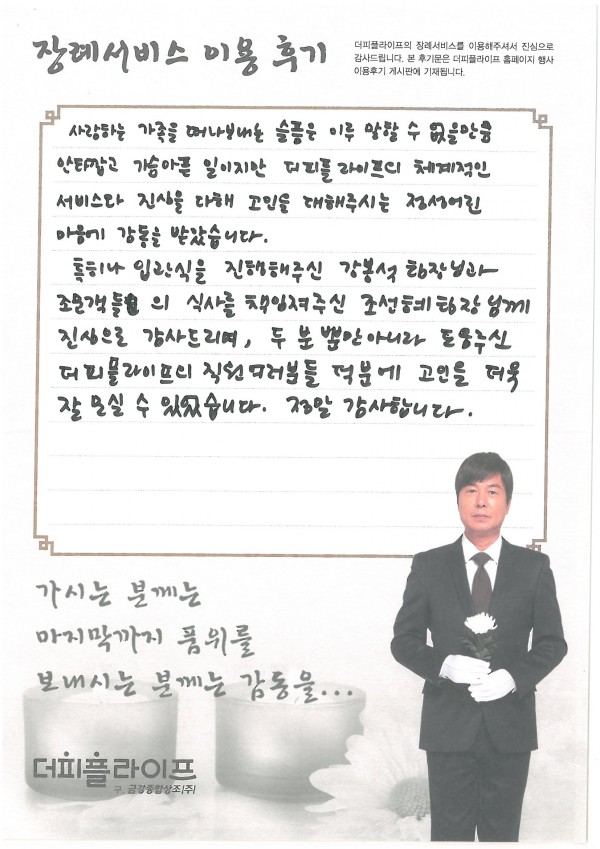 장례서비스 이용 후기
더피플라이프의 장례서비스를 이용해주셔서 진심으로
감사드립니다. 본 후기문은 더피플라이프 홈페이지 행사
이용후기 게시판에 기재됩니다.
사랑하는 가족을 떠나보내는 슬픔은 이루 말할 수 없을만큼
안타깝고 가슴아픈 일이지만 더피플라이프의 체계적인
서비스와 진심을 다해 고인을 대해주시는 정성어린
마음에 감동을 받았습니다.
특히나 입관식을 진행해주신 강봉석 팀장님과
조문객들의 식사를 책임져주신 조선혜 팀장님께
진심으로 감사드리며, 두 분 뿐만아니라 도움주신
더피플라이프의 직원 여러분들 덕분에 고인을 더욱
잘 모실 수 있었습니다. 정말 감사합니다.
가시는 분께는
마지막까지 품위를
보내시는 분께는 감동을...
더피플라이프
구. 금강종합상조(주)